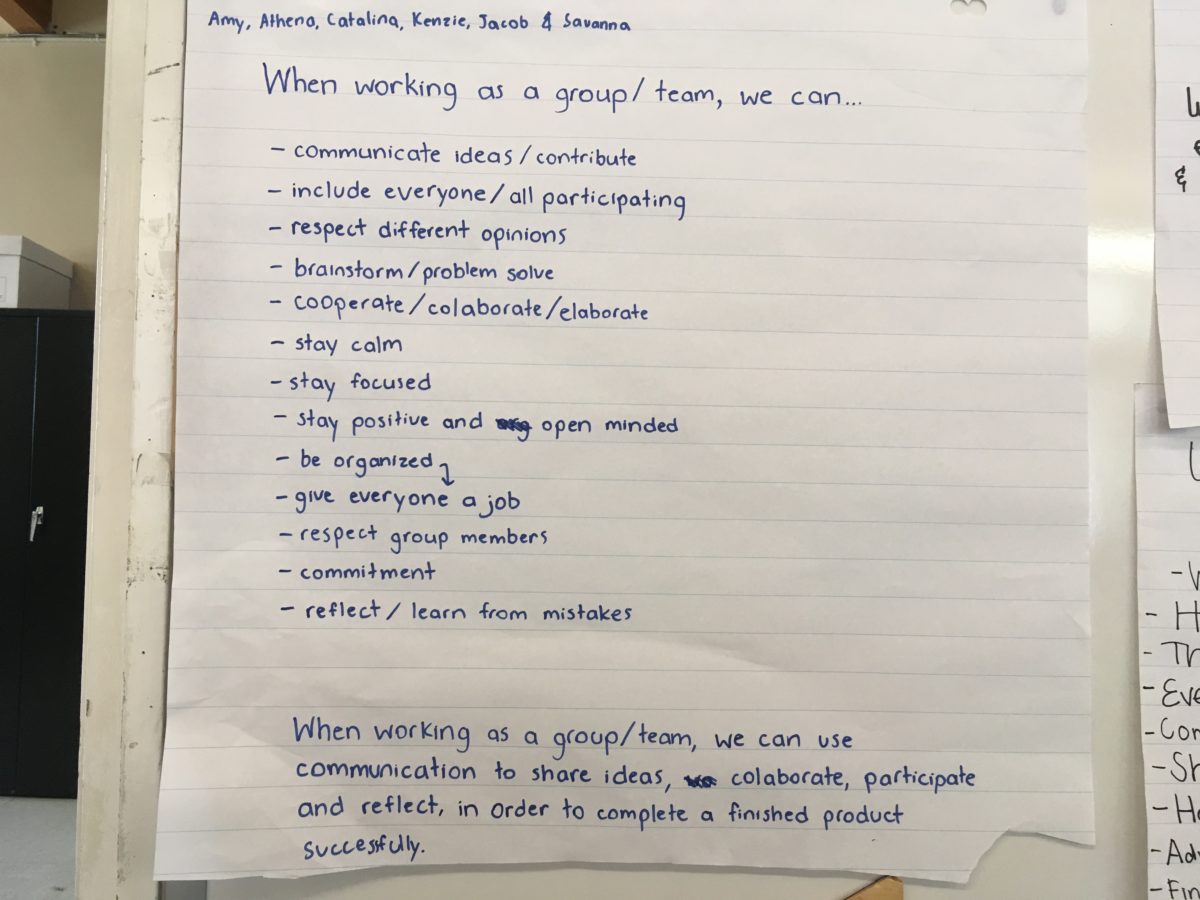 Amy, Athena, Catalina, Kenzie, Jacob & Savanna
When working as a group/team, we can...
- communicate ideas/contribute
- include everyone/all participating
- respect different opinions
- brainstorm/problem solve
- cooperate/colaborate/elaborate
- stay calm
- stay focused
- stay positive and open minded
- be organized
- give everyone a job
- respect group members
- commitment
- reflect/learn from mistakes
When working as a group/team, we can use
communication to share ideas, colaborate, participate
and reflect, in order to complete a finished product
successfully.
&